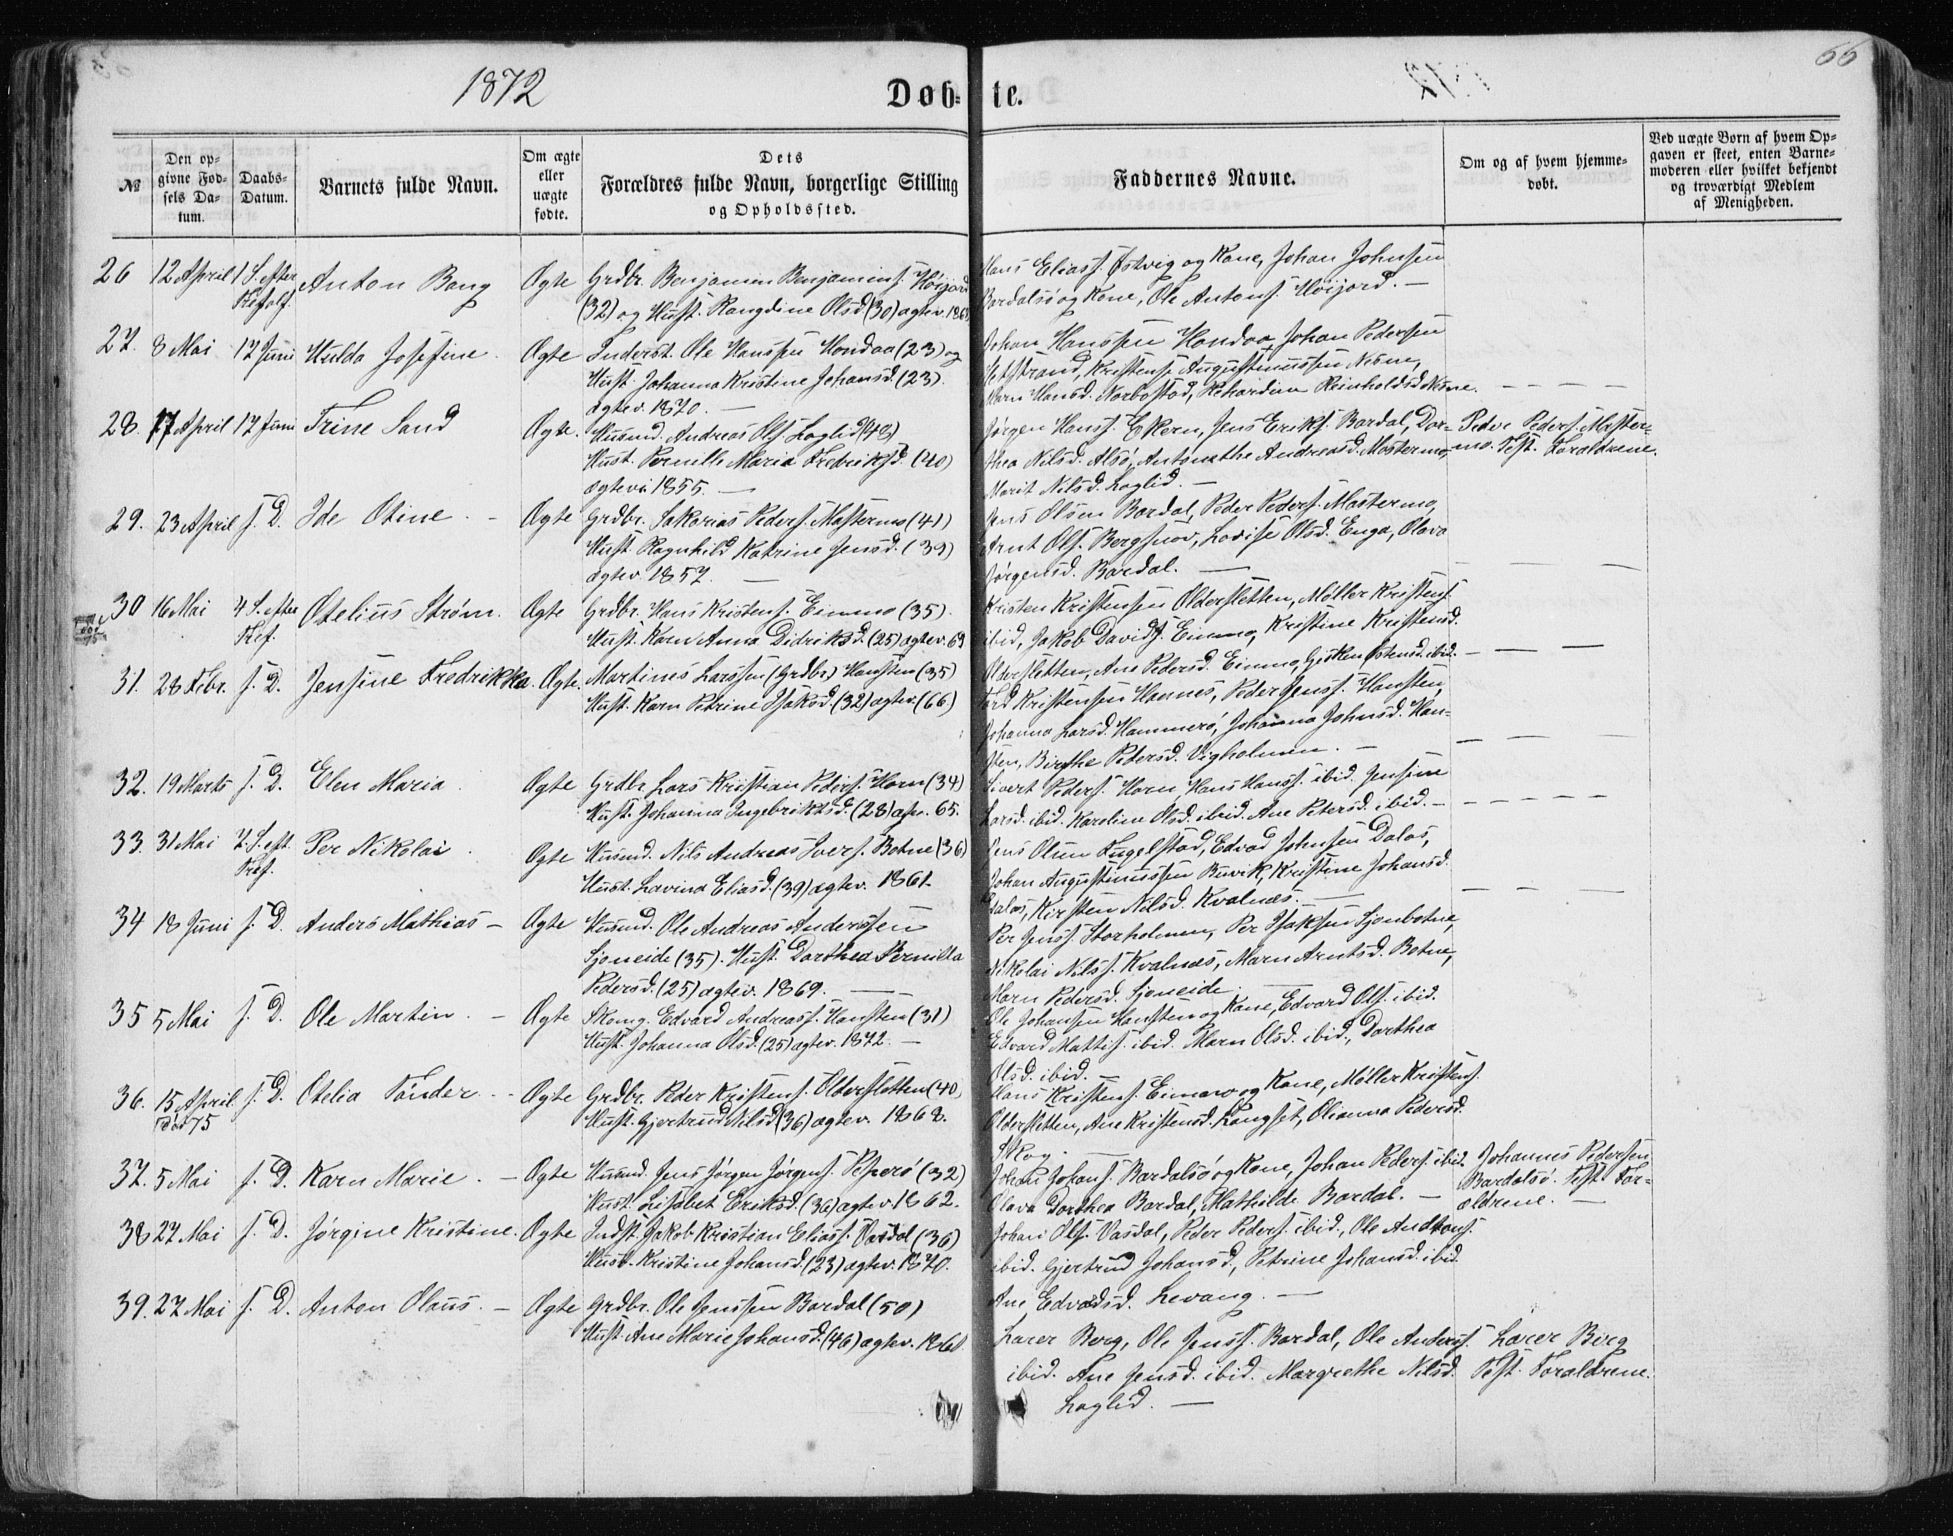 1872
Døb-
te.
66
№
Den op-
givne Fød-
sels Da-
tum.
Daabs-
Datum.
Barnets fulde Navn.
Om ægte
eller
uægte
fødte.
Dets
Forældres fulde Navn, borgerlige Stilling
og Opholdssted.
Faddernes Navne.
Om og af hvem hjemme-
døbt.
Ved uægte Børn af hvem Op-
gaven er skeet, enten Barne-
moderen eller hvilket bekjendt
og troværdigt Medlem
af Menigheden.
26 12 April 1 S. efter Anton Bang Ægte Grdbr. Benjamin Benjamins. Høijord
(32) og Hust. Rangdine Olsd. (30) ægtev.
Hans Eliass. Østvig og Kone, Johan Johnsen
Bardalsø og Kone, Ole Antons. Høijord. –
27. 8 Mai 17 Juni Hulda Josefine. Ægte Inderst. Ole Hanssen Hondaa (23) og
Hust. Johanna Kristine Johansd. (23).
ægtev. 1870. –
Johan Hanssen Hondaa, Johan Pedersen
Augustinussen Nesne,
Marn Hansd. Reinholdsd. Nesne.
28. 17 April 17 Juni Trine Sand Ægte. Husmd. Andreas Ols. Laglid (48)
Hust. Pernille Maria Fredriksd. (40)
ægtevi 1855. –
Jørgen Hanss. Ekern, Jens Eriks. Bardal, Dor-
thea Nilsd. Alsø, Antonethe Andreasd. Mastermo,
Marit Nilsd. Laglid. –
Peder Peders. Master-
mo. Test. Forældrene.
29. 23 April s. D. Ide Otine. – Ægte Grdbr. Sakarias Peders. Mastermo (41)
Hust. Ragnhild Katrine Jensd. (39)
ægtev. 1857. –
Jens Olsen Bardal, Peder Peders. Mastermo,
Arnt Ols. Lovise Olsd. Enga, Olava
Jørgensd. Bardal. –
30 16 Mai 4 S. efter Otelius Strøm. Ægte Grdbr. Hans Kristens. Einmo (35).
Hust. Karn Anna Didriksd. (25) ægtev. 69
Kristen Kristensen Oldersletten, Møller Kristens.
ibid, Jakob Davids. Einmo, Kristine Kristensd.
Oldersletten, Ane Pedersd. Einmo, ibid.
31. 28 Febr. s. D. Jensine Fredrikka. Ægte. Martines Larssen (Grdbr.) Hansten (35)
Hust. Karn Petrine Isaksd. (32) ægtev. (66)
Kristensen Peder Jenss. Hansten,
Johanna Larsd. Hammerø, Johanna Johnsd. Han-
sten, Birthe Pedersd. Vigholmen. –
32. 19 Marts s. D. Elen Maria. Ægte Grdbr. Lars Kristian Peders. Horn (34)
Hust. Johanna Ingebriktsd. (28) 65.
Sivert Peders. Horn, Hans Hanss. ibid. Jensine
Larsd. ibid. Karoline Olsd. ibid. Ane Petersd. ibid. –
33. 31 Mai 7. S. eft. Per Nikolai. Ægte Husmd. Nils Andreas Ivers. Botne (36)
Hust. Lavina Eliasd. (39) ægtev. 1861.
Jens Olsen Fugelstad, Edvad Johnsen Dalos,
Johan Augustinussen Buvik, Kristine Johansd.
Dalos, Kirsten Nilsd. Kvalnæs. –
34 18 Juni s. D. Anders Mathias – Ægte Husmd. Ole Andreas Anderssen
Sjoneide (35). Hust. Dorthea Pernilla
Pedersd. (25) ægtev. 1869. –
Per Jenss. Storholmen, Per Isaksen Sjonbotne,
Nikolai Nilss. Kvalnæs, Marn Arntsd. Botne,
Marn Pedersd. Sjoneide. –
35 5 Mai s. D. Ole Martin. – Ægte Edvard Andreass. Hansten (31)
Hust. Johanna Olsd. (25) ægtev. 1872. –
Ole Johansen Hansten og Kone, Edvard Ols. ibid.
Edvard Mattis. ibid. Marn Olsd. ibid., Dorthea
Olsd. ibid. –
36. 15 April s. D. Otelia Tønder. – Ægte Grdbr. Peder Kristens. Oldersletten (40)
død 75
Hust. Gjertrud Nilsd. (36) ægtev. 1868.
Hans Kristens. Einmo og Kone, Møller Kristens.
Oldersletten, Ane Kristensd. Langset, Olianna Pedersd.
Skog. –
37. 5 Mai s. D. Karn Marie. – Ægte Husmd. Jens Jørgen Jørgens. (32)
Hust. Eriksd. (36) ægtev 1862.
Johan Johans. Bardalsø og Kone, Johan Peders. ibid.
Olava Dorthea Bardal, Mathilde Bardal. –
Johannes Pedersen
Bardalsø. Test. For-
ældrene. –
38 27 Mai s. D. Jørgine Kristine. Ægte Indst. Jakob Kristian Eliass. Vasdal (36)
Hust. Kristine Johansd. (23) ægtev. 1870.
Johan Ols. Vasdal, Peder Peders. ibid., Ole
ibid. Gjertrud Johansd., Petrine Johansd. ibid
Ane Edvardsd. Levang. –
39. 27 Mai s. D. Anton Olaus. – Ægte Grdbr. Ole Jenssen Bardal (50)
Hust. Ane Marie Johansd. (46) ægtev.
Lærer Berg, Ole Jenss. Bardal, Ole Anders.
ibid. Ane Jensd. ibid. Margrethe Nilsd.
Laglid. –
Lærer Berg
Test. Forældrene.